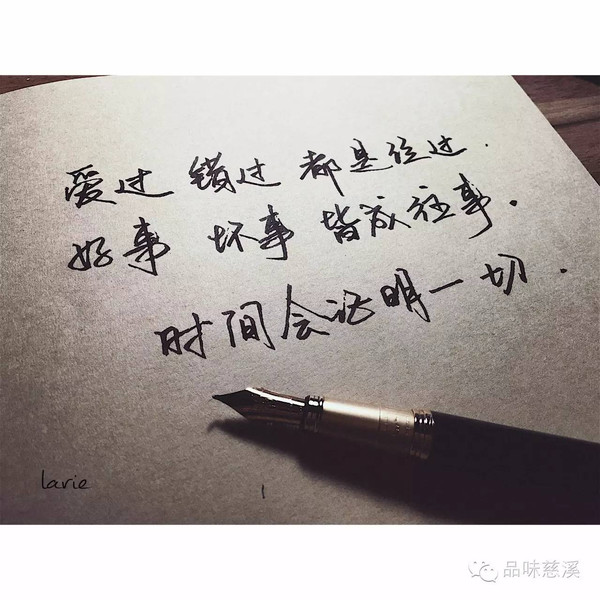 爱过 错过 都是经过.
好事 坏事 皆成往事.
时间会证明一切.
larie
品味慈溪